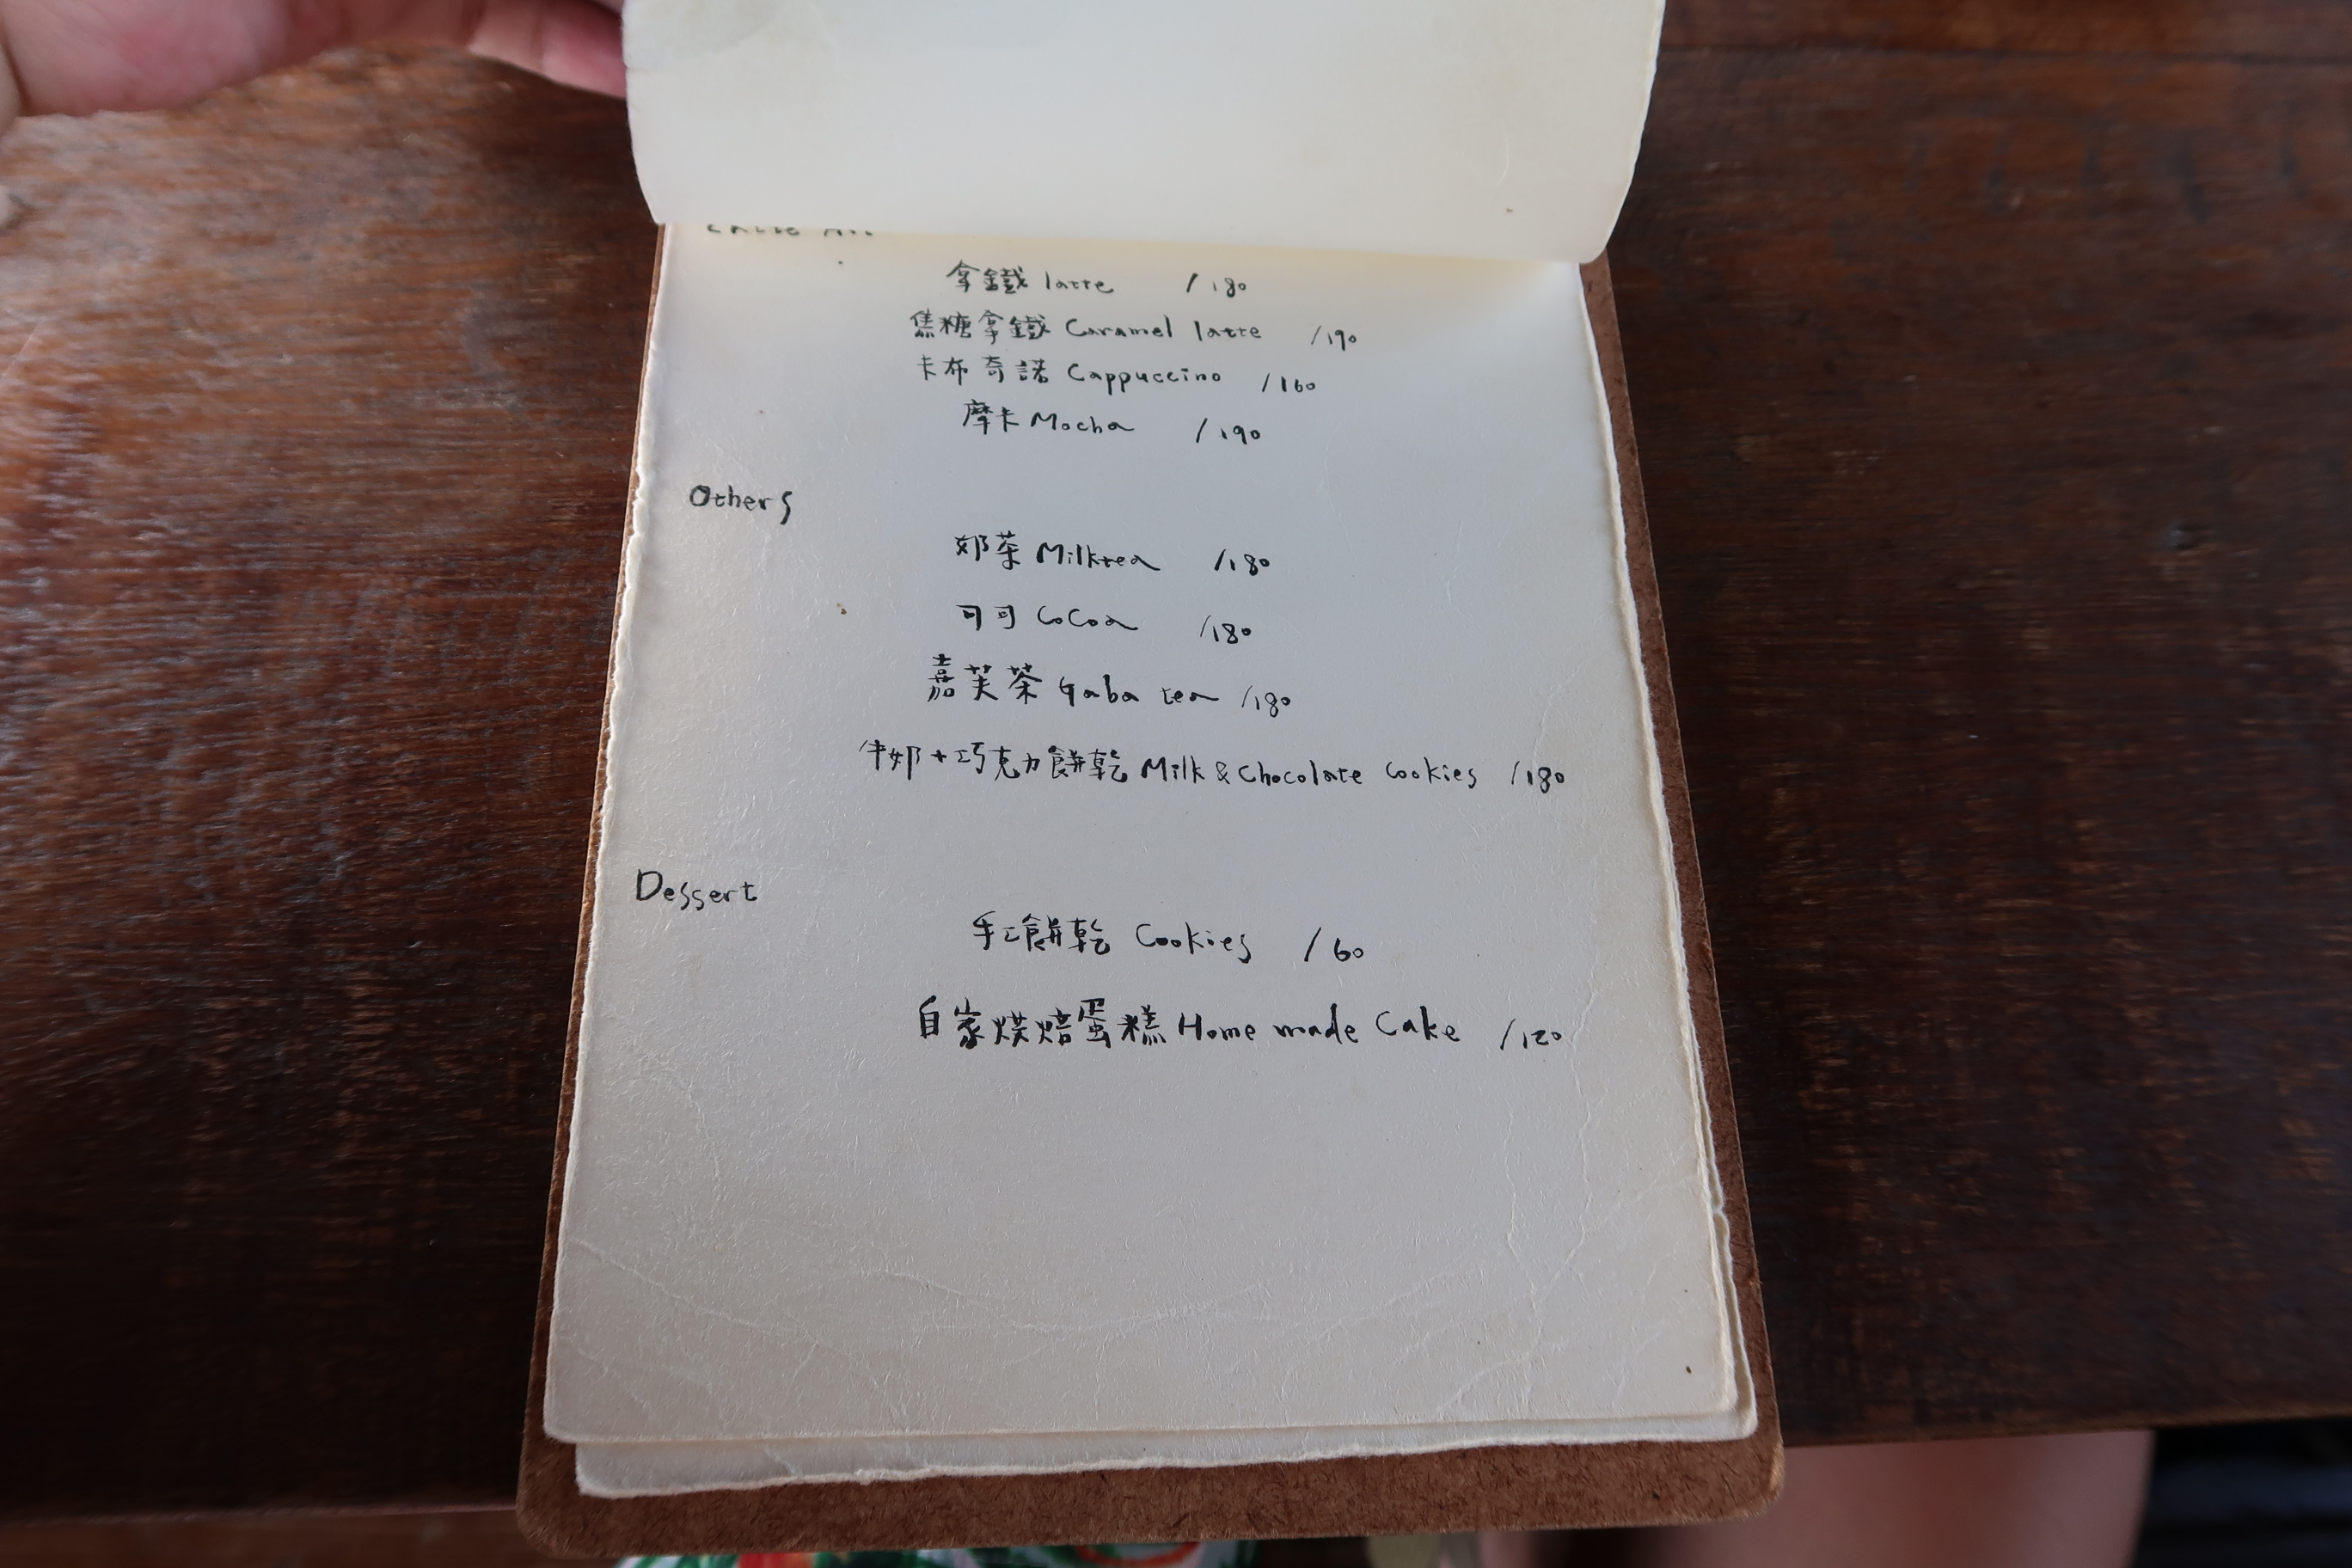 Latte Art
拿鐵 latte /180
焦糖拿鐵 Caramel latte /190
卡布奇諾 Cappuccino /160
摩卡 Mocha /190
Others
奶茶 Milktea /180
可可 CoCoa /180
嘉芙茶 Gaba tea /180
牛奶+巧克力餅乾 Milk & Chocolate Cookies /180
Dessert
手工餅乾 Cookies /60
自家烘焙蛋糕 Home made Cake /120